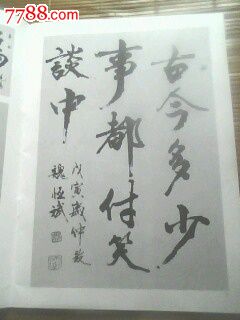 7788.com
古今多少
事都付笑
談中
戊寅歲仲秋
魏恆斌